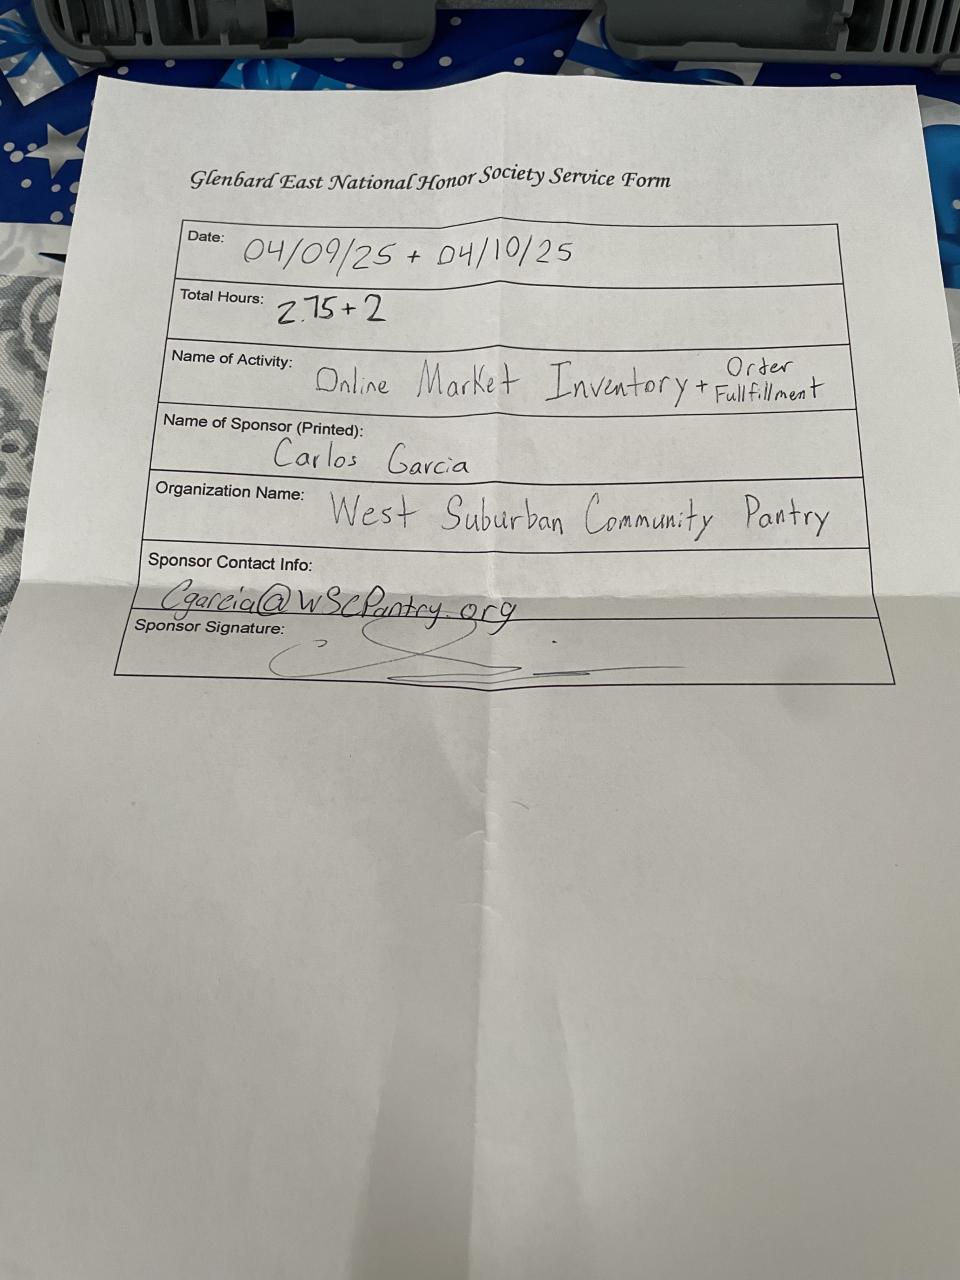 Glenbard East National Honor Society Service Form
Date: 04/09/25 + 04/10/25
Total Hours: 2.75+2
Name of Activity: Online Market Inventory + Order Fullfillment
Name of Sponsor (Printed):
Carlos Garcia
Organization Name: West Suburban Community Pantry
Sponsor Contact Info:
Cgarcia@WSCPantry.org
Sponsor Signature: